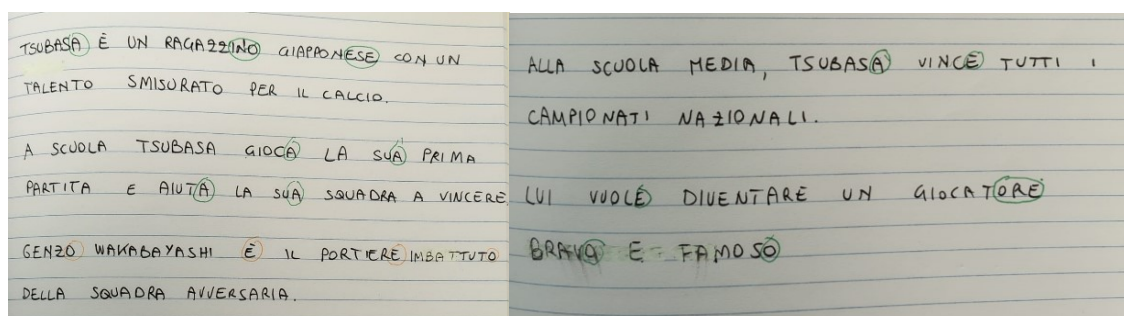 TSUBASA È UN RAGAZZINO GIAPPONESE CON UN
TALENTO SMISURATO PER IL CALCIO.
A SCUOLA TSUBASA GIOCA LA SUA PRIMA
PARTITA E AIUTA LA SUA SQUADRA A VINCERE.
GENZO WAKABAYASHI È IL PORTIERE IMBATTUTO
DELLA SQUADRA AVVERSARIA.
ALLA SCUOLA MEDIA, TSUBASA VINCE TUTTI I
CAMPIONATI NAZIONALI.
LUI VUOLE DIVENTARE UN GIOCATORE
BRAVO E FAMOSO